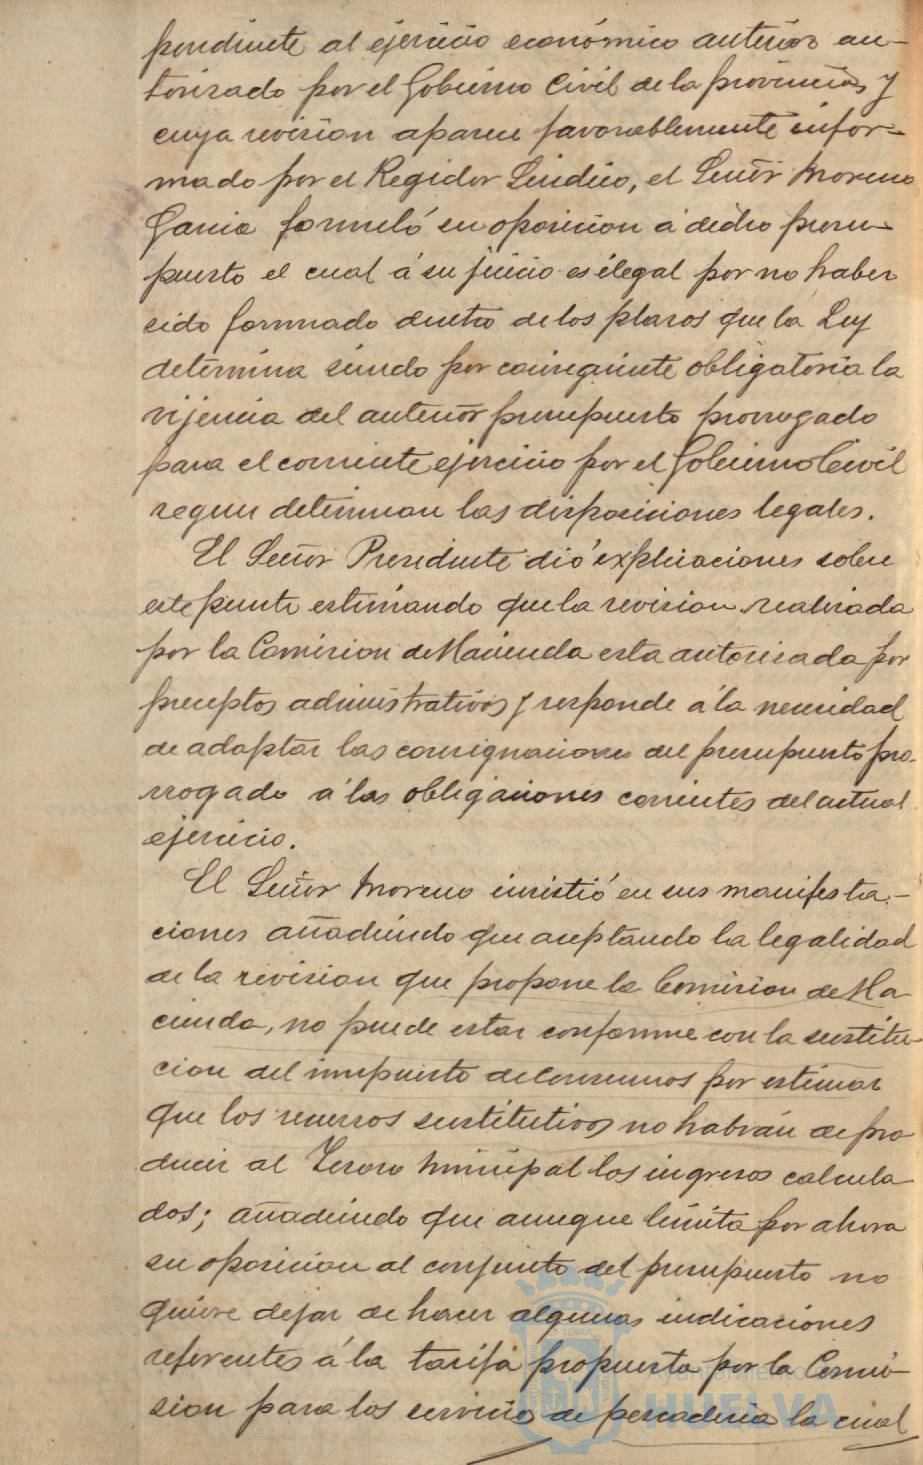 pendiente al ejercicio económico anterior au-
torizado por el Gobierno Civil de la provincia, y
cuya revision aparece favorablemente infor-
mado por el Regidor Sindico, el Señor Moreno
Garcia formuló su oposicion á dicho presu-
puesto el cual á su juicio es ilegal por no haber
sido formado dentro de los plazos que la Ley
determina siendo por consiguiente obligatoria la
vijencia del anterior presupuesto prorrogado
para el corriente ejercicio por el Gobierno Civil
segun determinan las disposiciones legales.
El Señor Presidente dió explicaciones sobre
este punto estimando que la revision realizada
por la Comision de Hacienda esta autorizada por
preceptos administrativos y responde á la necesidad
de adaptar las consignaciones del presupuesto pro-
rrogado á las obligaciones corrientes del actual
ejercicio.
El Señor Moreno insistió en sus manifesta-
ciones añadiendo que aceptando la legalidad
de la revision que propone la Comision de Ha
cienda, no puede estar conforme con la sustitu-
cion del impuesto de Consumos por estimar
que los recursos sustitutivos no habrán de pro
ducir al Tesoro Municipal los ingresos calcula
dos; añadiendo que aunque limita por ahora
su oposicion al conjunto del presupuesto no
quiere dejar de hacer algunas indicaciones
referentes á la tarifa propuesta por la Comi-
sion para los servicios de pescaderia la cual
Ayuntamiento de
HUELVA